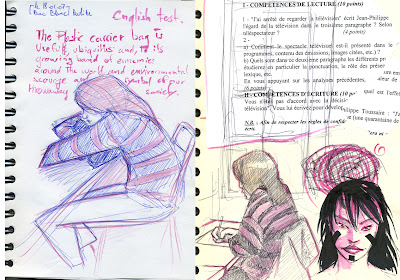 English test.
The Plastic carrier bag is
Usefull, ubiquitus and, to its
growing band of enemies
around the world and environmental
scourge and a symbol of our
throwaway society
I - COMPETENCES DE LECTURE (10 points)
1 - "J'ai arrêté de regarder la télévision" écrit Jean-Philippe
l'égard du la télévision dans le troisième paragraphe ? Selon
téléspectateur ?
(4 points)
2 -
a) Comment le spectacle télévisuel est-il présenté dans le
programmes, contenu des émissions, images citées, etc.) ?
b) Quels sont dans ce deuxième paragraphe les différents pr
étudierez en particulier la ponctuation, le rôle des préser
lexique, etc.
En vous appuyant sur les analyses précédentes,
(6 points)
quel est l'effet
II - COMPÉTENCES D'ECRITURE (10 po
Vous n'êtes pas d'accord avec la décision
télévision". Vous lui écrivez pour
Philippe Toussaint : "J'a
(une quarantaine de
N.B. : Afin de respecter les règles de confid
écrit.